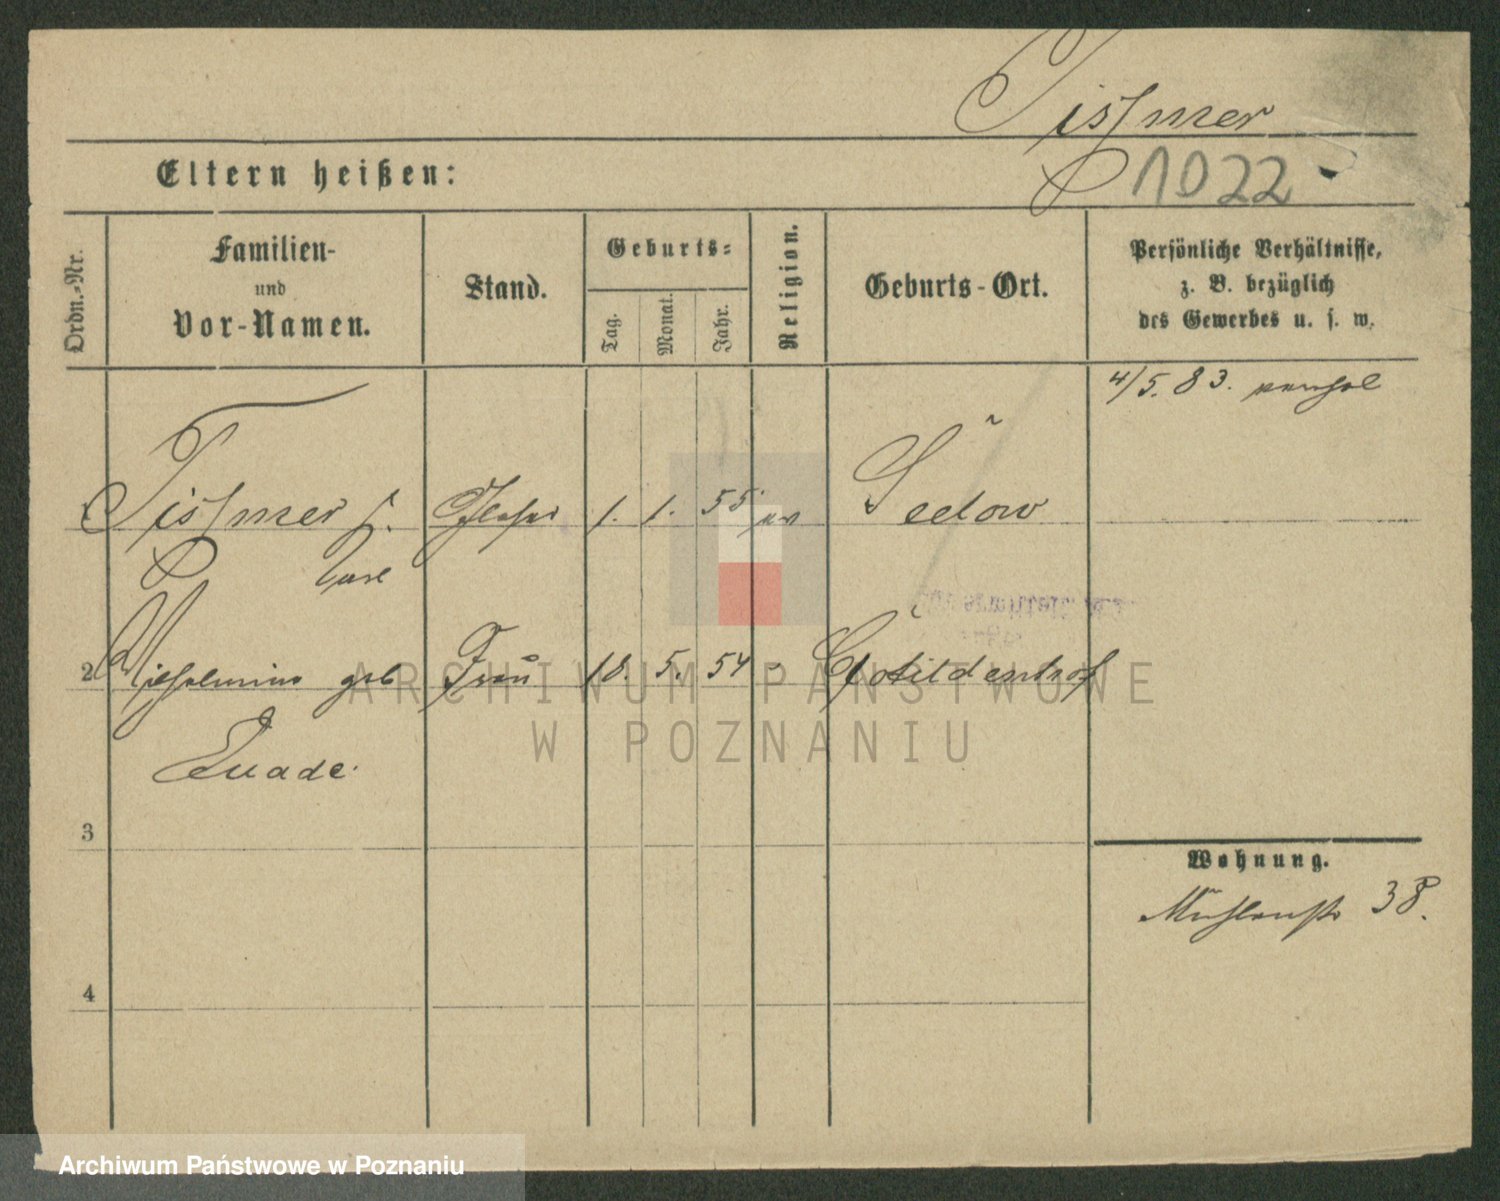 Tismer
1022
Eltern heißen:
Ordn.-Nr.
Familien-
und
Vor-Namen.
Stand.
Geburts-
Tag.
Monat.
Jahr.
Religion.
Geburts-Ort.
Persönliche Verhältnisse,
z. B. bezüglich
des Gewerbes u. s. w.
4/5. 83.
Tismer 1. 1. 55 ev Seelow
Carl
2 Wilhelmine geb Frau 18. 5. 54 "
Quade.
3
Wohnung.
Mühlenstr 38.
4
ARCHIWUM PAŃSTWOWE
W POZNANIU
Archiwum Państwowe w Poznaniu